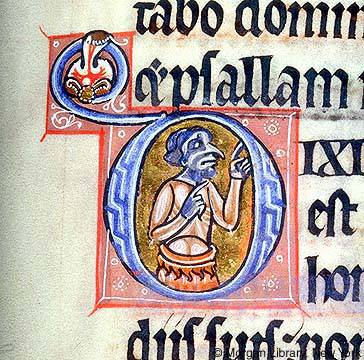 tabo domin
& psallam
IXI
est
diis suis: non
© Morgan Library, New York